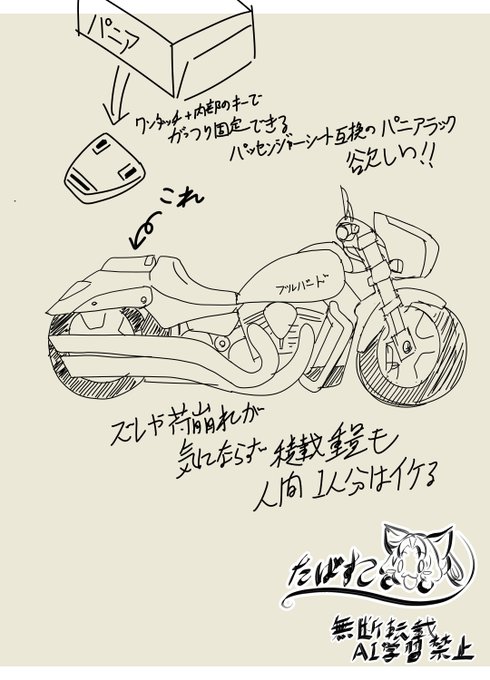 パニア
ワンタッチ+内部のキーで
がっつり固定できる
パッセンジャーシート互換のパニアラック
欲しい!!
これ
ブルバード
ズレや荷崩れが
気にならず積載重量も
人間1人分はイケる
たばすこ
無断転載
AI学習禁止